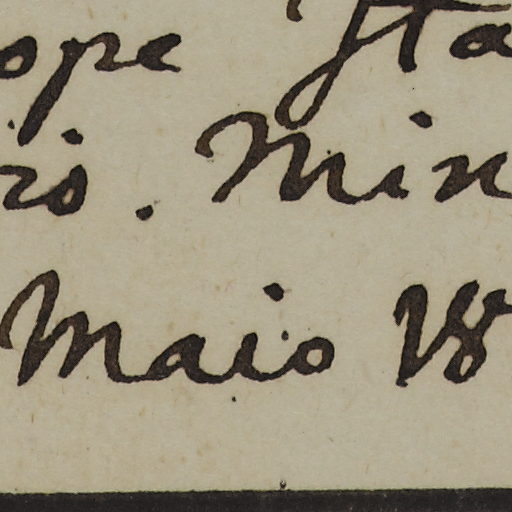 ope Sta
ris. Min
Maio 18